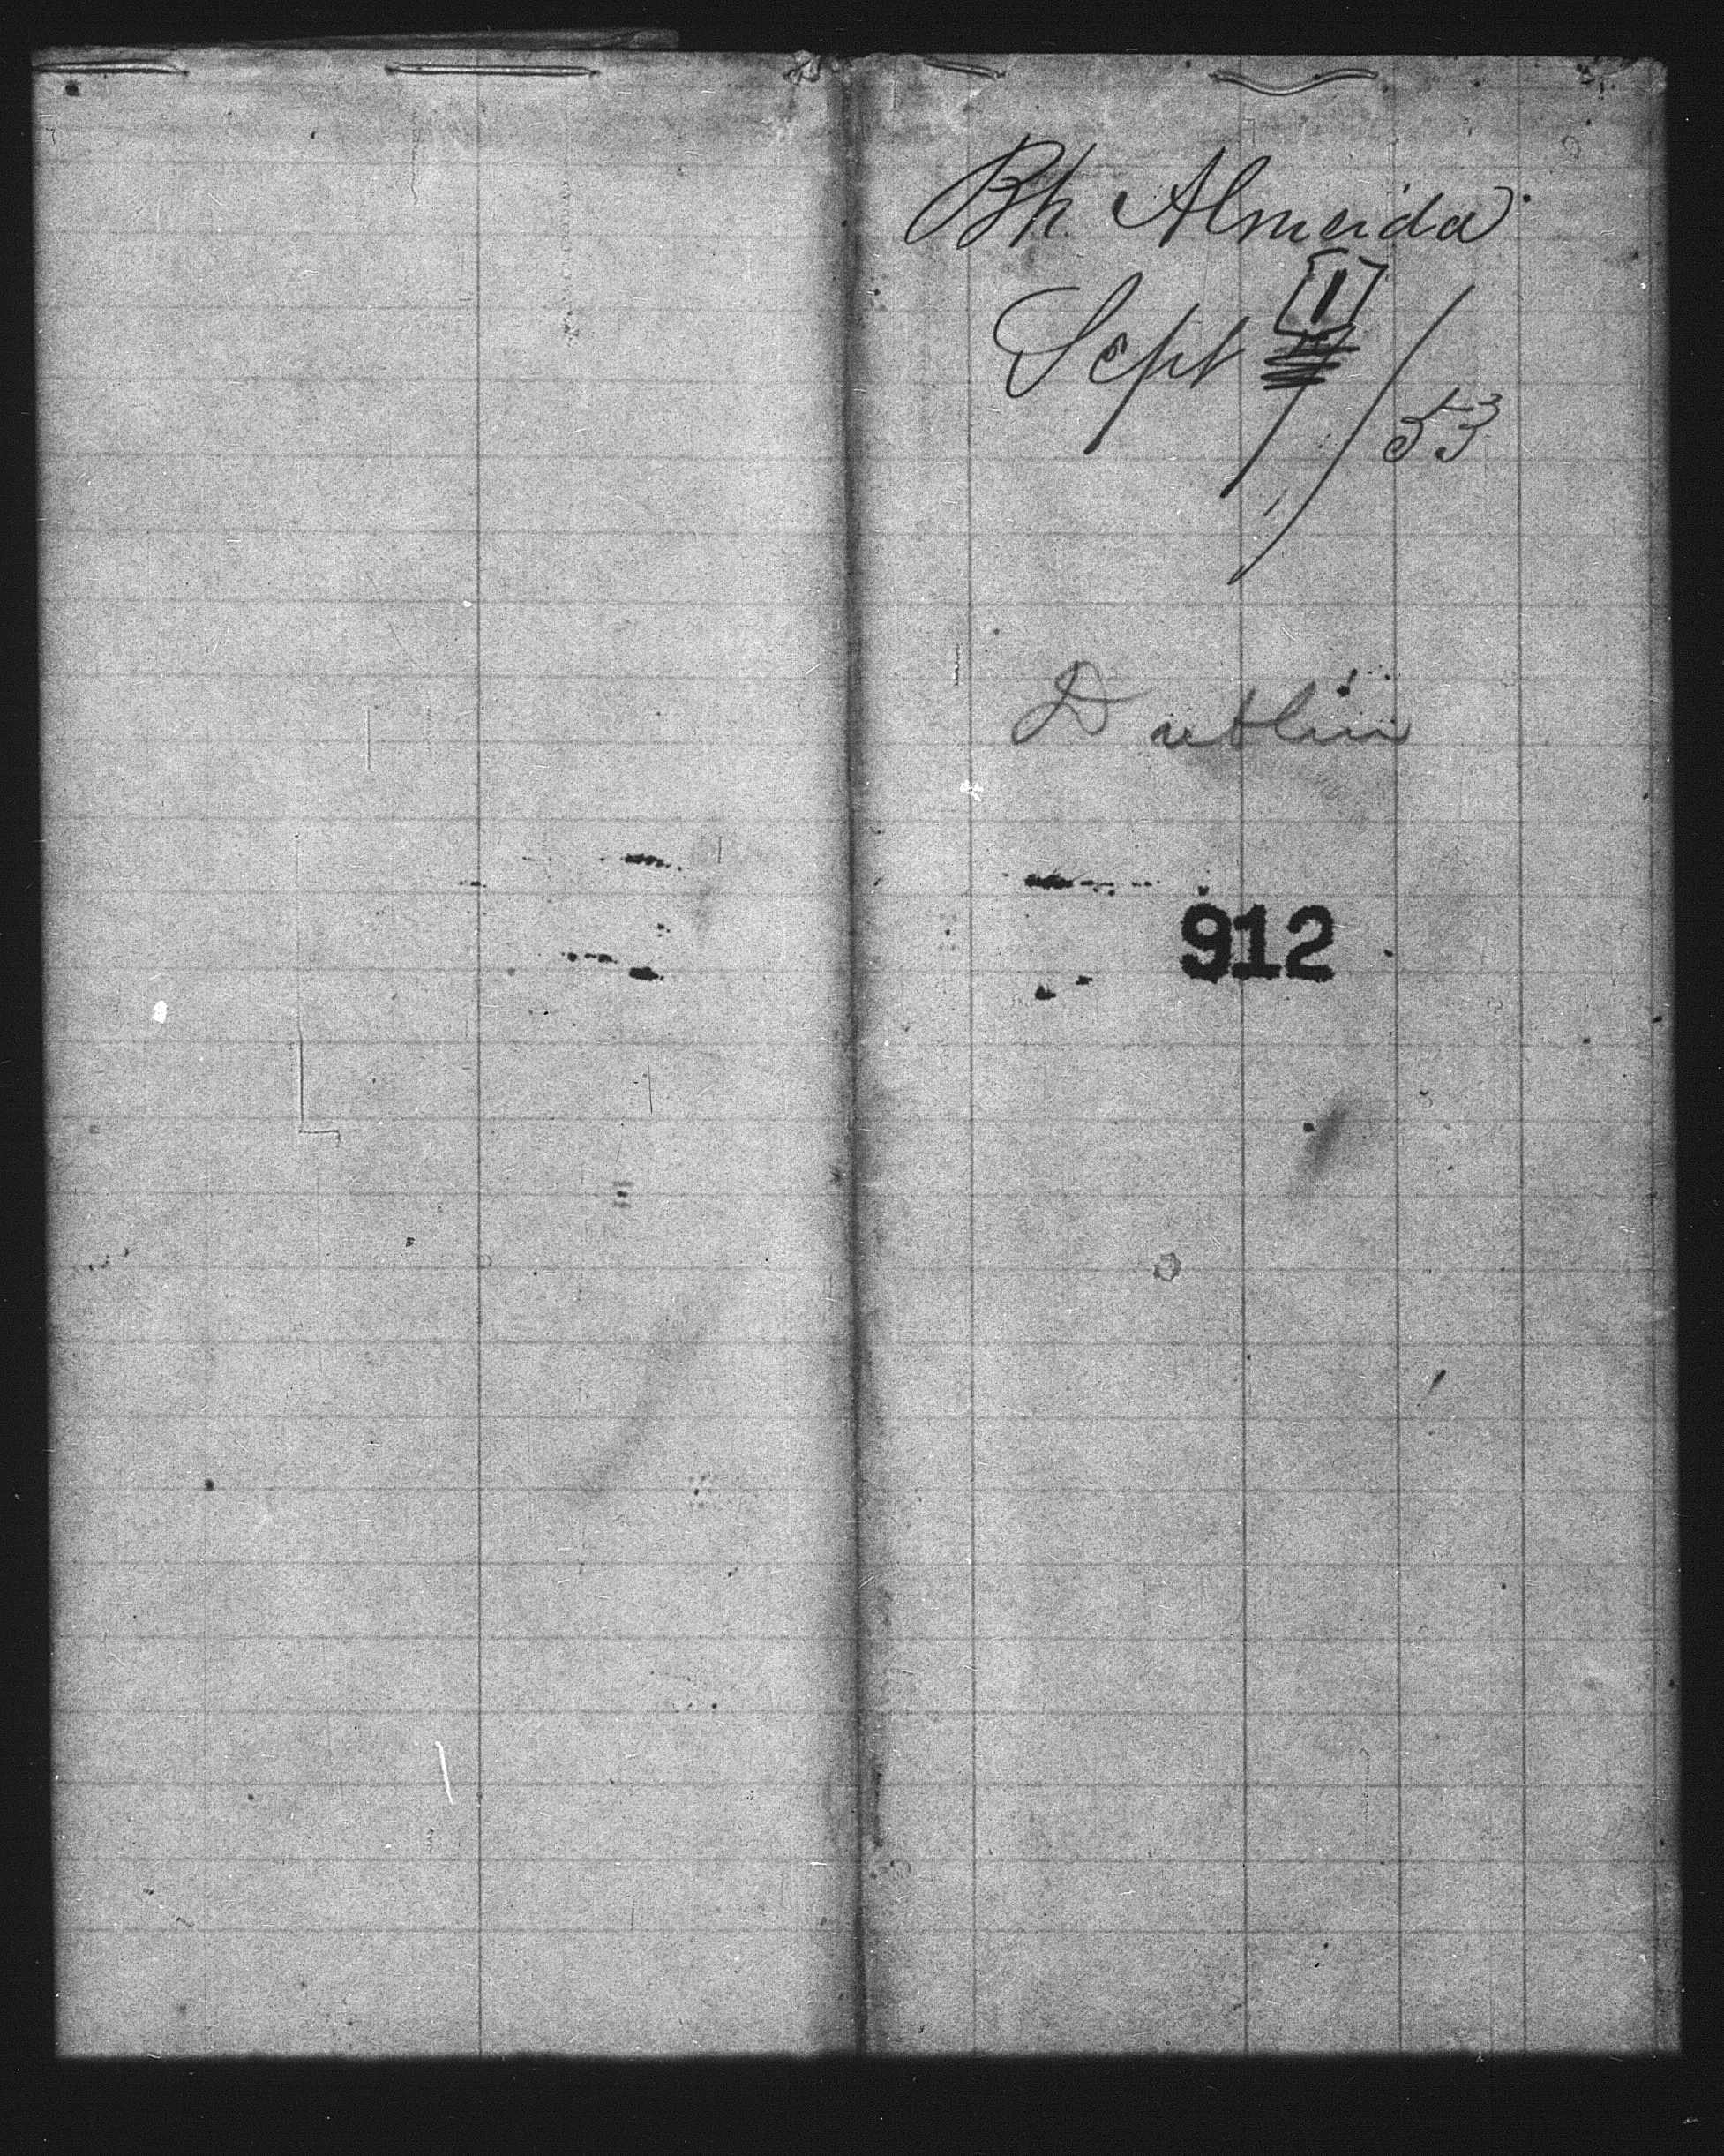 Bk. Almeida
[1]
Sept /53
Dublin
912